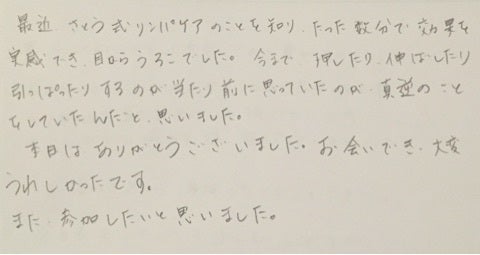 最近、さとう式リンパケアのことを知り、たった数分で効果を
実感でき、目からうろこでした。今まで、押したり、伸ばしたり
引っぱったりするのが当たり前に思っていたのが、真逆のこと
をしていたんだと、思いました。
本日はありがとうございました。お会いでき、大変
うれしかったです。
また、参加したいと思いました。